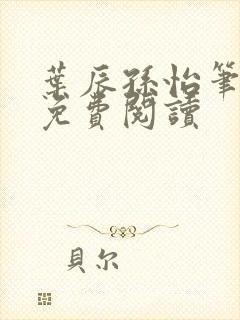 葉辰孫怡筆
免費閱讀
貝尔